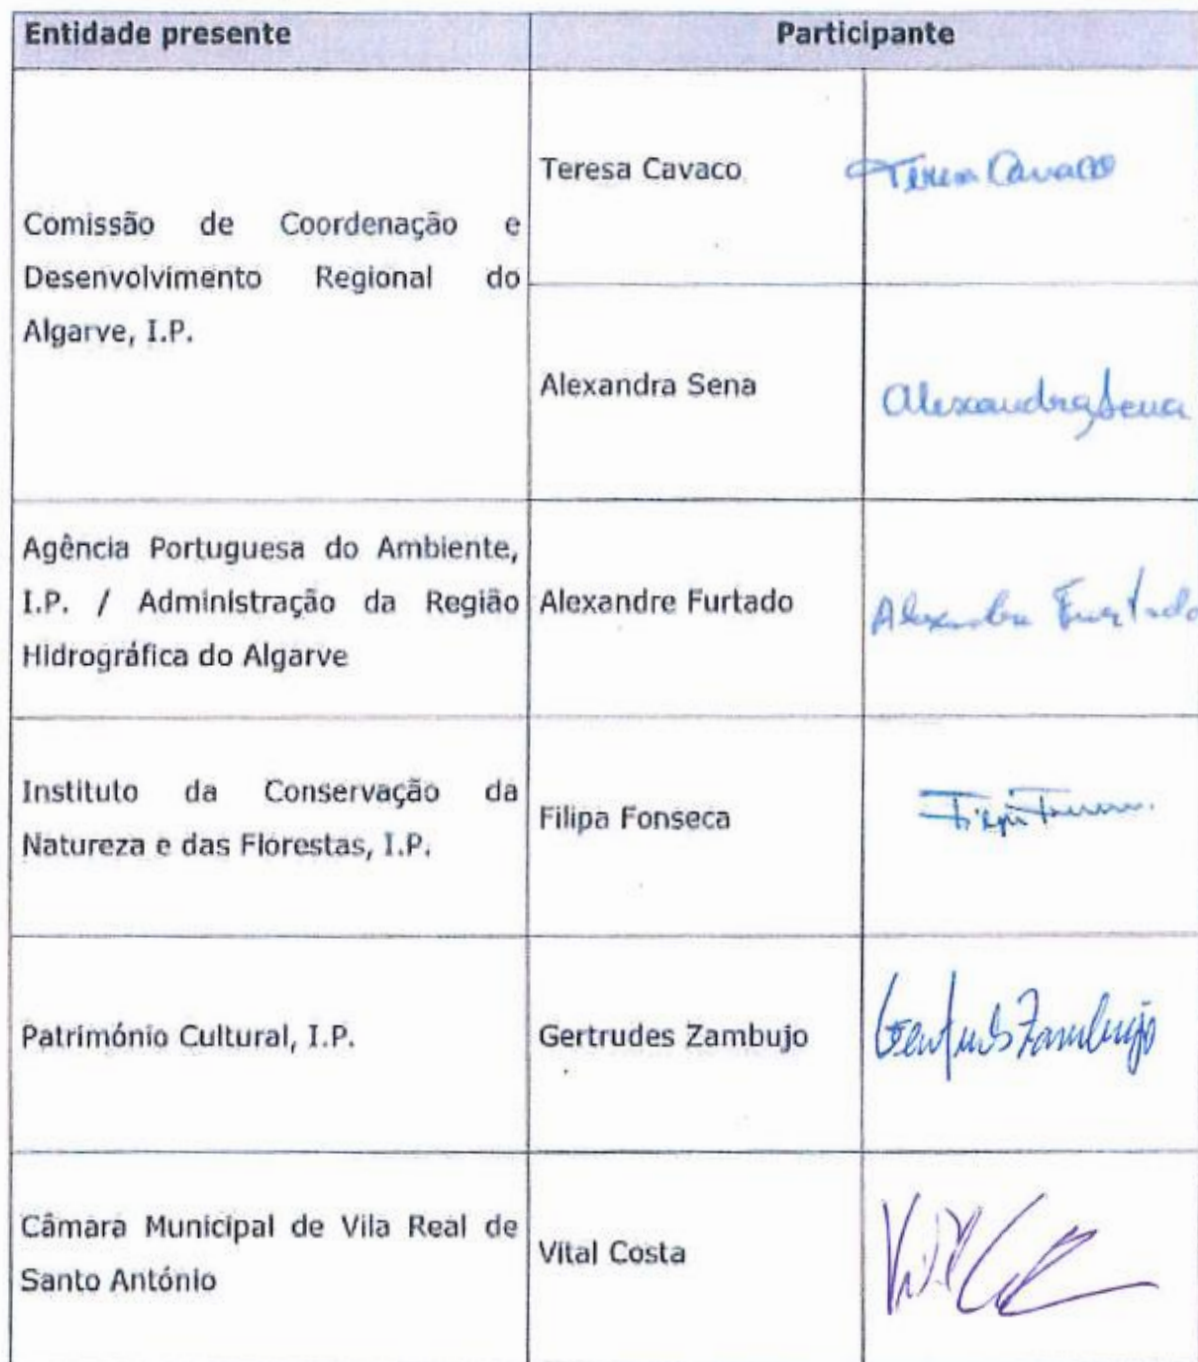 Entidade presente
Participante
Comissão de Coordenação e
Desenvolvimento Regional do
Algarve, I.P.
Teresa Cavaco
Teresa Cavaco
Alexandra Sena
Alexandra Sena
Agência Portuguesa do Ambiente,
I.P. / Administração da Região
Hidrográfica do Algarve
Alexandre Furtado
Alexandre Furtado
Instituto da Conservação da
Natureza e das Florestas, I.P.
Filipa Fonseca
Património Cultural, I.P.
Gertrudes Zambujo
Gertrudes Zambujo
Câmara Municipal de Vila Real de
Santo António
Vital Costa